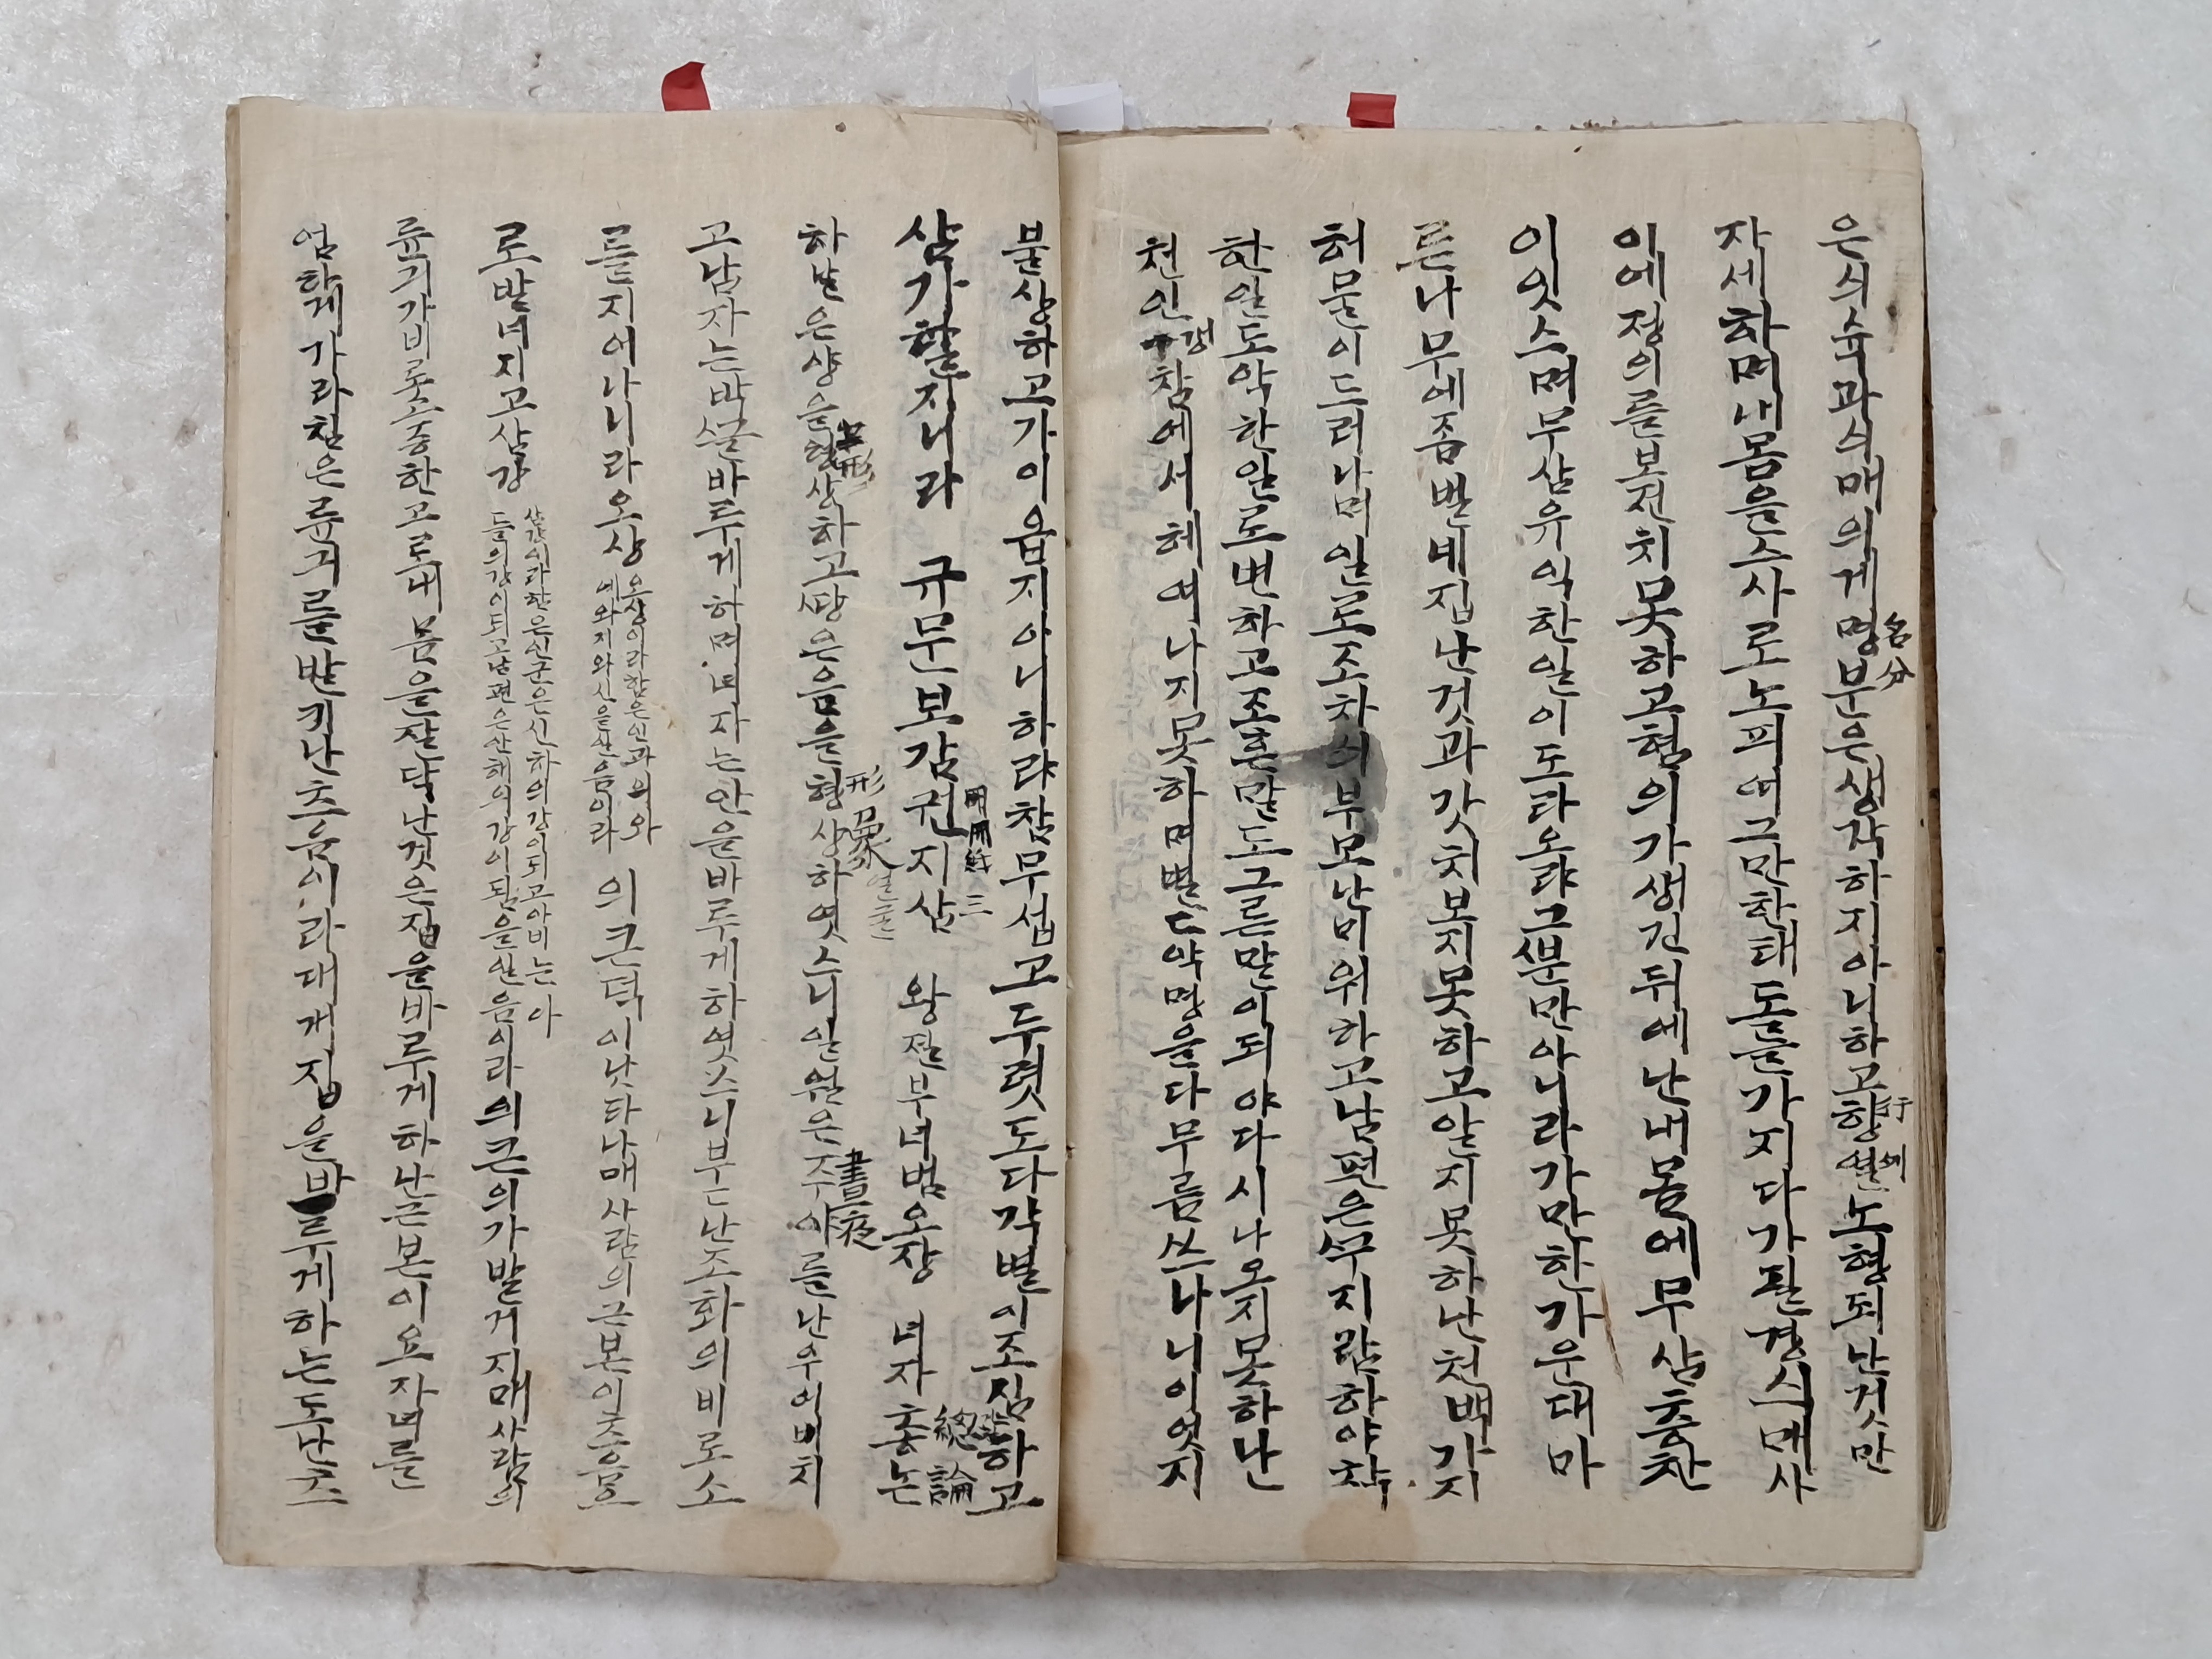 은싀슉과싀매의게명분은생각하지아니하고향열노형되난것만
名分
行
예
자세하며내몸을스사로노피여그만한태도를가지다가환경싀메사
이에졍의를보젼치못하고혐의가생긴뒤에난내몸에무삼층찬
이잇스며무삼유익한일이도라오랴그뿐만아니라가만한가운대마
른나무에좀벌네집난것과갓치보지못하고알지못하난쳔백가지
허물이드러나며일로조차싀부모난미워하고남편은꾸지람하야착
한일도악한일로변하고조흔말도그른말이되야다시나오지못하난
쳔인갱참에서헤여나지못하며별노악명을다무릅쓰나니이엇지
불상하고가이읍지아니하랴참무섭고두렷도다각별이조심하고
삼가할지니라 규문보감권지삼 왕졀부녀범오장 녀자총논
三
總論
하날은양을형상하고땅은음을형상하엿스니일월은주야를난우어비치
形
形象
晝夜
고남자는밧글바루게하며녀자는안을바루게하엿스니부는난조화의비로소
를지어나니라오상
오상이라함은인과의와
예와지와신을알음이라
의큰덕이낫타나매사람의근본이층음
로발녀지고삼강
삼강이라한은신군은신하의강이되고아비는아
들의강이되고남편은안해의강이됨을알음이라
의큰의가발게지매사람의
륜긔가비로소중한고로내몸을잘닥난것은집을바루게하난근본이요자녀를
엄하게가라침은륜긔를발키난츠음이라대개집을바루게하는도난즈